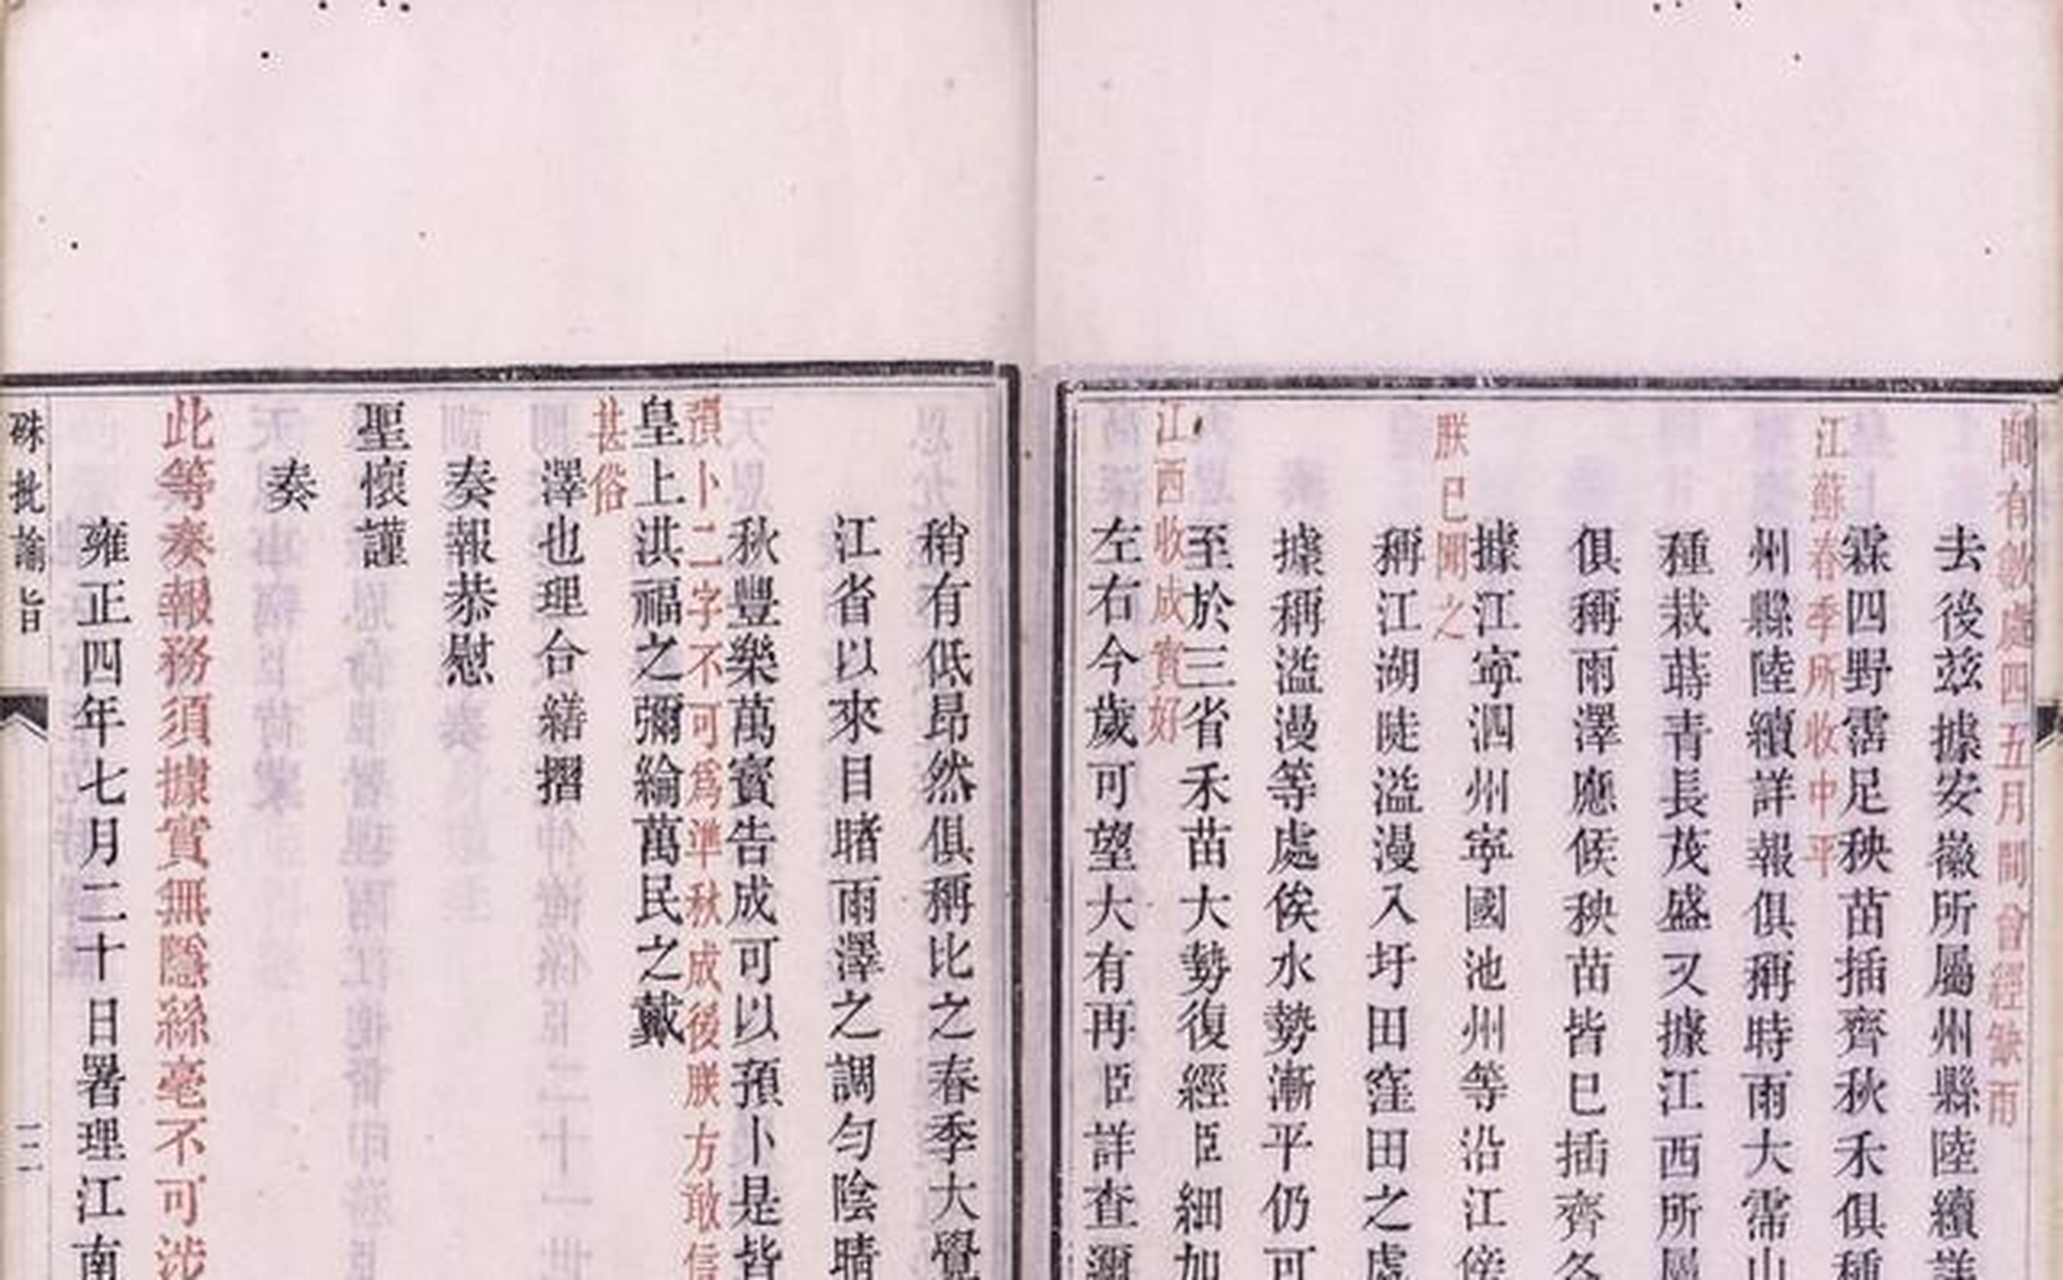 間有歉處四五月間曾經缺雨
去後茲據安徽所屬州縣陸續詳
江蘇春季所收中平
霖四野霑足秧苗插齊秋禾俱種
州縣陸續詳報俱稱時雨大霈山
種栽蒔青長茂盛又據江西所屬
俱稱雨澤應候秧苗皆已插齊各
據江寧泗州寧國池州等沿江傍
朕已聞之
稱江湖陡溢漫入圩田窪田之處
據稱溢漫等處俟水勢漸平仍可
至於三省禾苗大勢復經臣細加
江西收成實好
左右今歲可望大有再臣詳查邇
稍有低昂然俱稱比之春季大覺
江省以來目睹雨澤之調勻陰晴
秋豐樂萬寶告成可以預卜是皆
預卜二字不可為準秋成後朕方敢信
皇上洪福之彌綸萬民之戴
甚俗
澤也理合繕摺
奏報恭慰
聖懷謹
奏
此等奏報務須據實無隱絲毫不可涉
雍正四年七月二十日署理江南
硃批諭旨